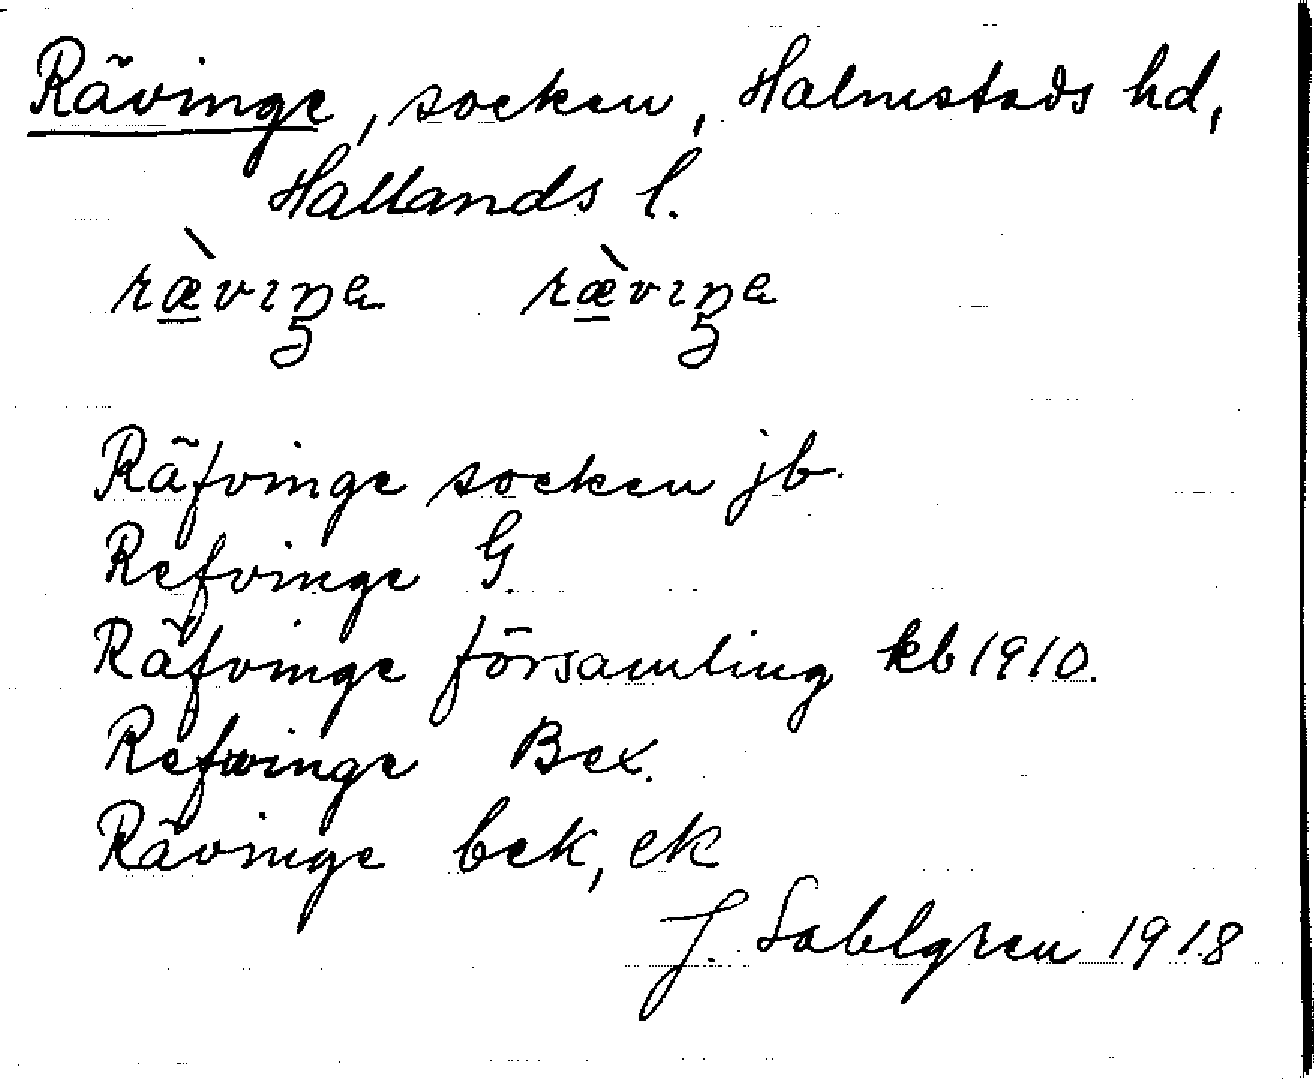 Rävinge, socken, Halmstads hd,
Hallands l.
Räfvinge socken jb.
Refvinge G.
Räfvinge församling kb 1910.
Refwinge Bex.
Rävinge bek, ek
J. Sahlgren 1918